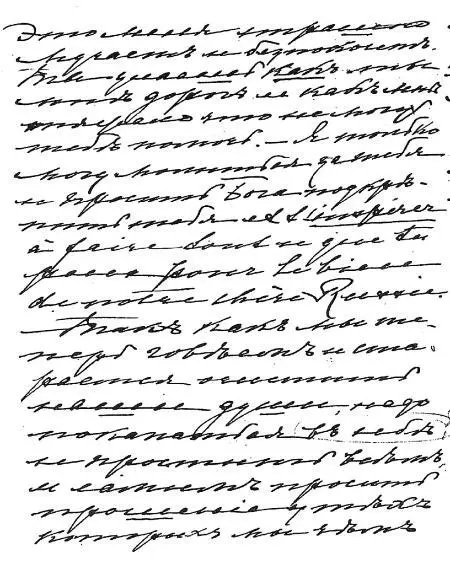 Это меня страшно
мучаетъ и безпокоитъ.
Ты знаешь какъ ты
мнѣ дорогъ и какъ мнѣ
тяжело что не могу
тебѣ помочь. — Я только
могу молиться за тебя
и просить Бога подкрѣ-
пить тебя et t'inspirer
à faire tout ce que tu
peux pour le bien
de notre chère Russie.
— Такъ какъ мы те-
перь говѣемъ и ста-
раемся очистить
наши души, надо
покопаться въ себѣ
и простить всѣмъ,
и самимъ просить
прощенiе у тѣхъ
которыхъ мы чѣмъ